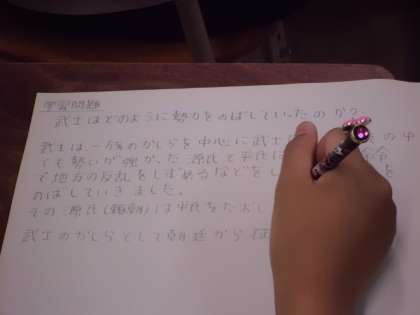 学習問題
武士はどのように勢力をのばしていったのか?
武士は一族のかしらを中心に武士 の中
でも勢いが強かった源氏と平氏に 命令
で地方の反乱をしずめるなどをし を
のばしていきました。
その源氏(頼朝)は平氏をたおし
武士のかしらとして朝廷から征